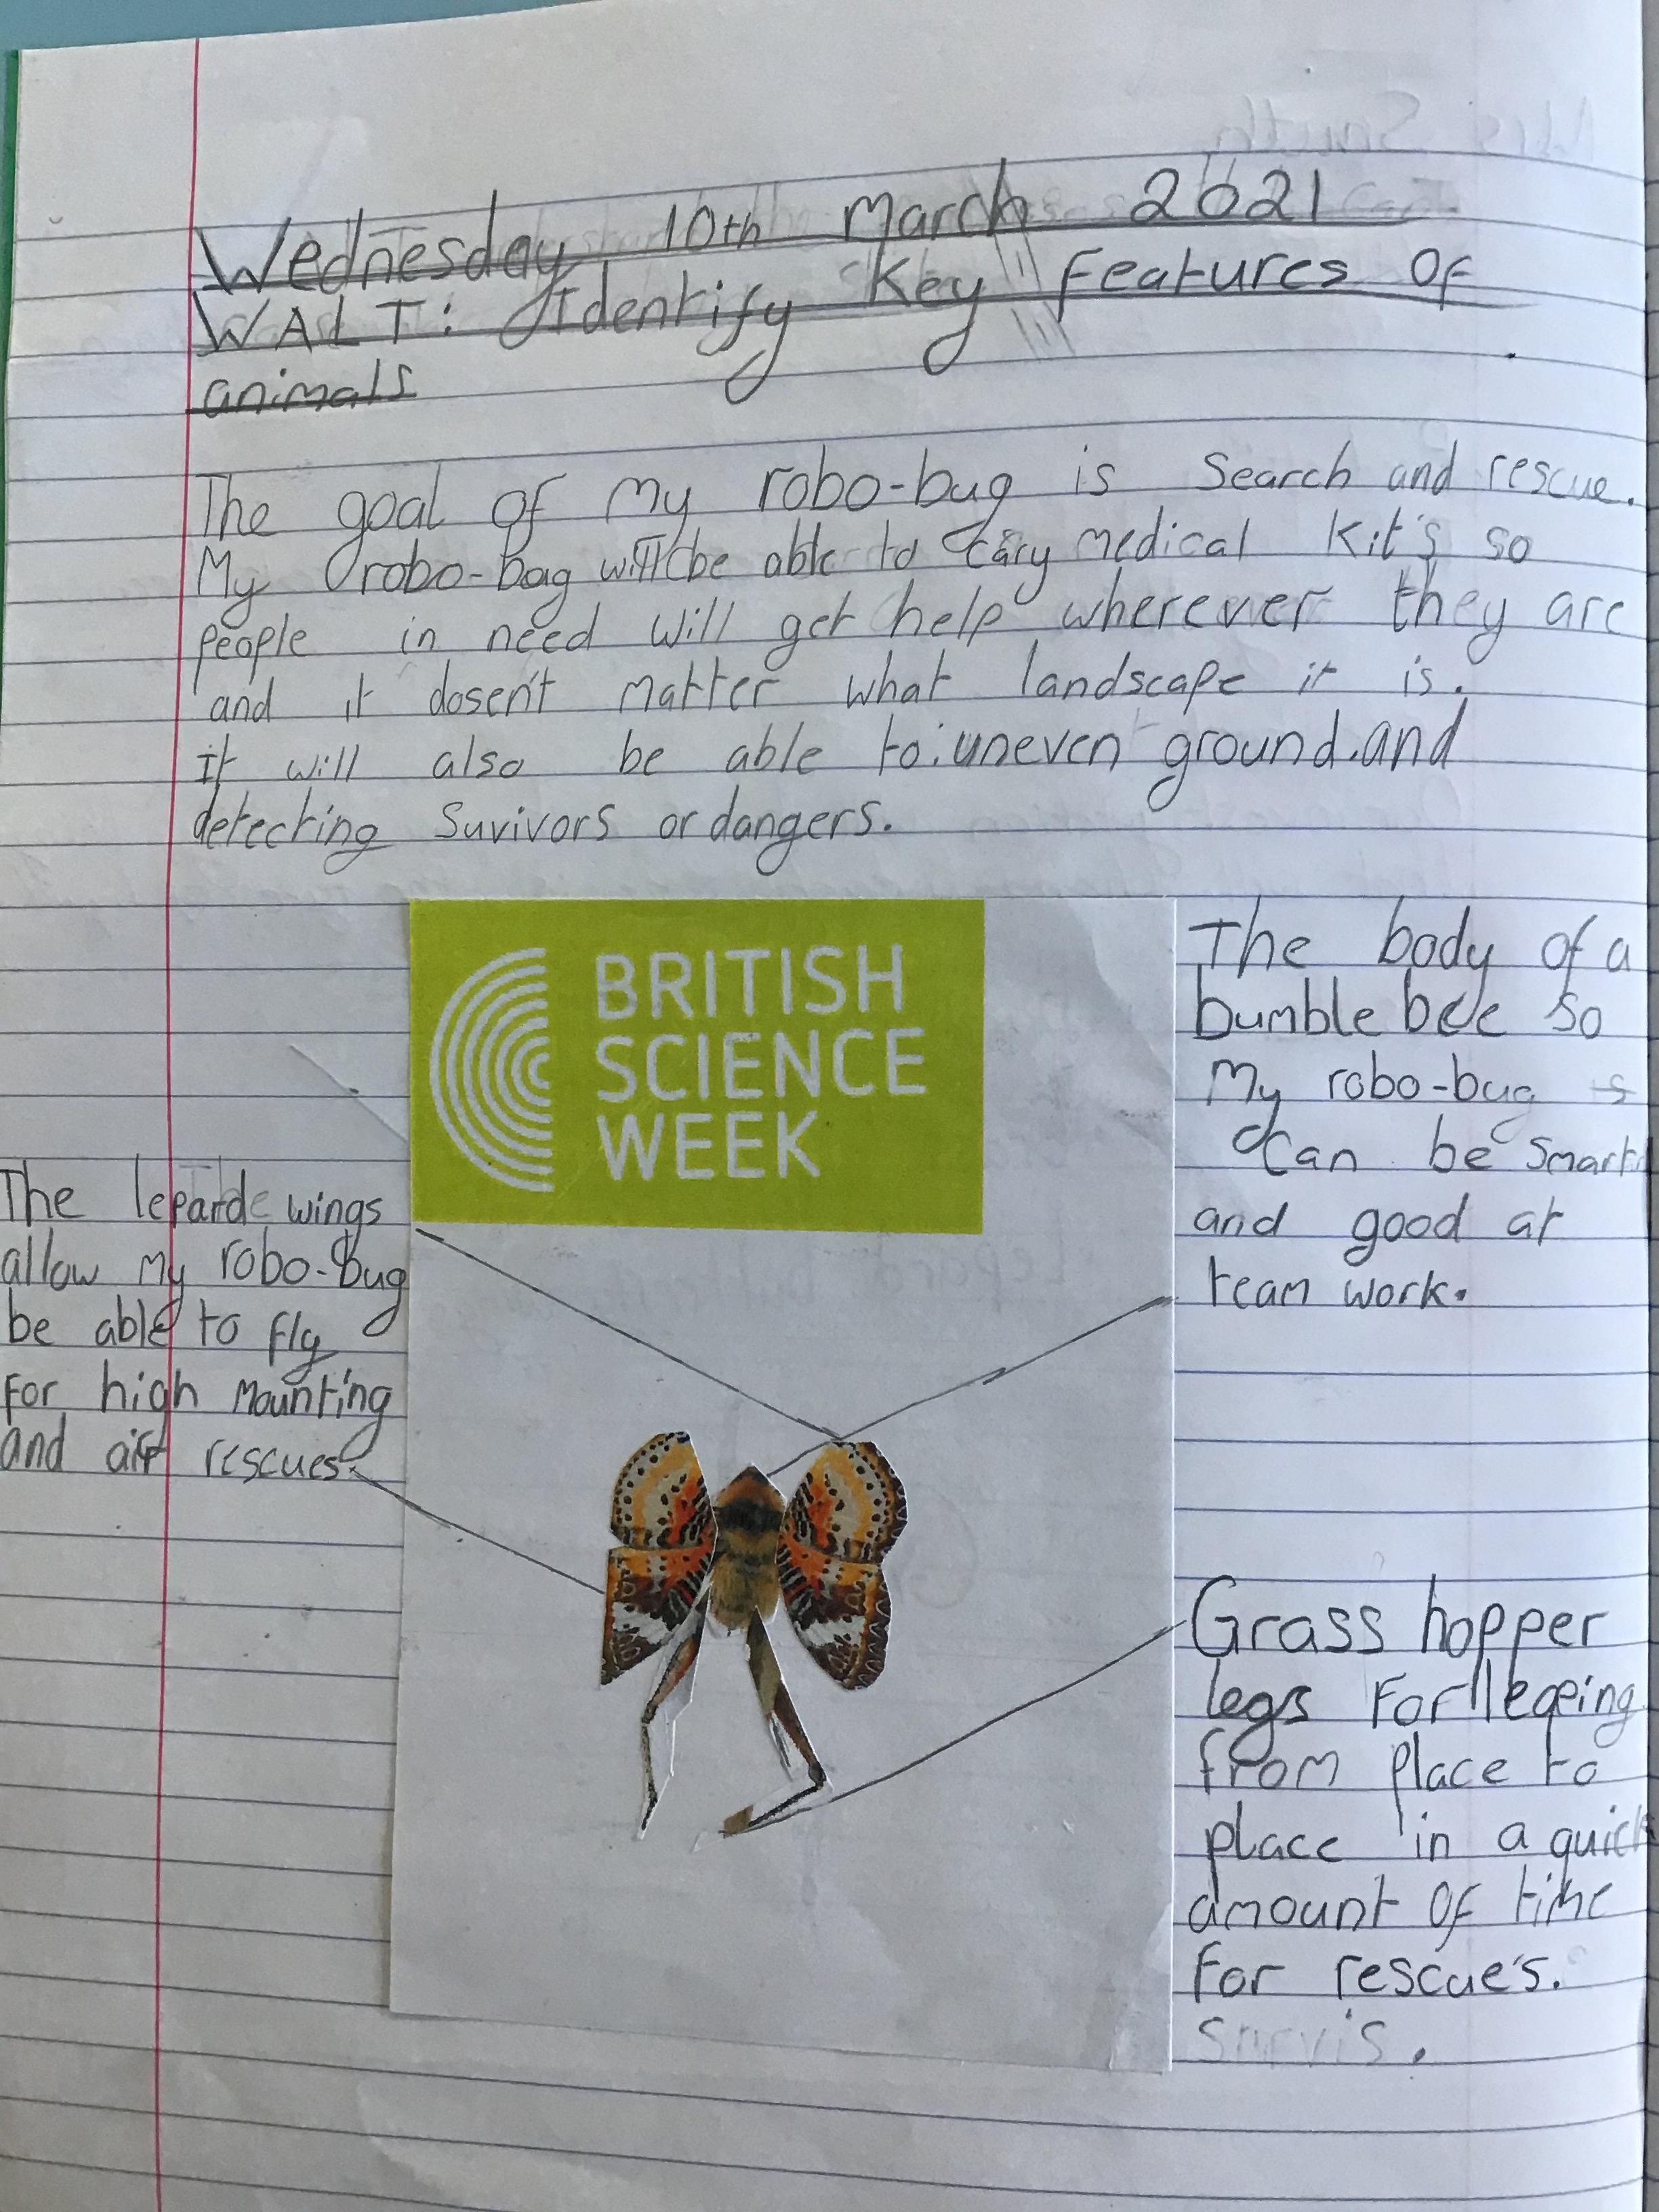 Wednesday 10th March 2021
WALT: Identify Key features Of
animals
The goal of my robo-bug is Search and rescue.
My robo-bag will be able to cary medical kit's so
people in need will get help wherever they are
and it dosen't matter what landscape it is.
It will also be able to. uneven ground. and
detecting Suvivors or dangers.
BRITISH
SCIENCE
WEEK
The body of a
bumble bee so
My robo-bug
Can be Smart
and good at
team work.
The leparde wings
allow my robo-Bug
be able to fly
For high Mounting
and air rescues.
Grass hopper
legs For leaping
from place to
place in a quick
amount OF time
For rescue's.